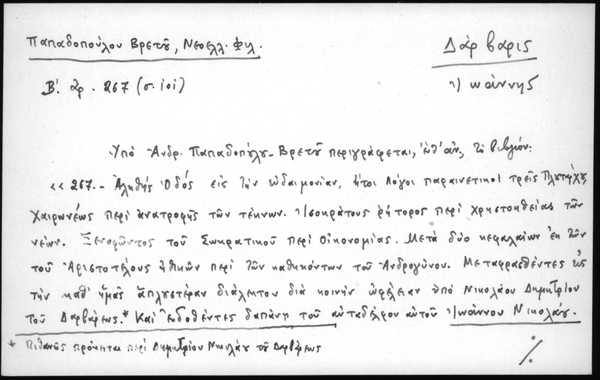 Παπαδοπούλου Βρετοῦ, Νεοελλ. Φιλ.
Δάρβαρις
Β'. ἀρ. 267 (σ. 101)
Ἰωάννης
Ὑπὸ Ἀνδρ. Παπαδοπούλου-Βρετοῦ περιγράφεται, τὸ βιβλίον:
«267.- Ἀληθὴς Ὁδὸς εἰς τὴν εὐδαιμονίαν, ἤτοι Λόγοι παραινετικοὶ τρεῖς Πλουτάρχου
Χαιρωνέως περὶ ἀνατροφῆς τῶν τέκνων. Ἰσοκράτους ῥήτορος περὶ χρηστοηθείας τῶν
νέων. Ξενοφῶντος τοῦ Σωκρατικοῦ περὶ Οἰκονομίας. Μετὰ δύο κεφαλαίων ἐκ τῶν
τοῦ Ἀριστοτέλους ἠθικῶν περὶ τῶν καθηκόντων τοῦ Ἀνδρογύνου. Μεταφρασθέντες εἰς
τὴν καθ' ἡμᾶς ἁπλουστέραν διάλεκτον διὰ κοινὴν ὠφέλειαν ὑπὸ Νικολάου Δημητρίου
τοῦ Δαρβάρεως.* Καὶ ἐκδοθέντες δαπάνῃ τοῦ αὐταδέλφου αὐτοῦ Ἰωάννου Νικολάου.
* Πιθανῶς πρόκειται περὶ Δημητρίου Νικολάου τοῦ Δαρβάρεως
./.